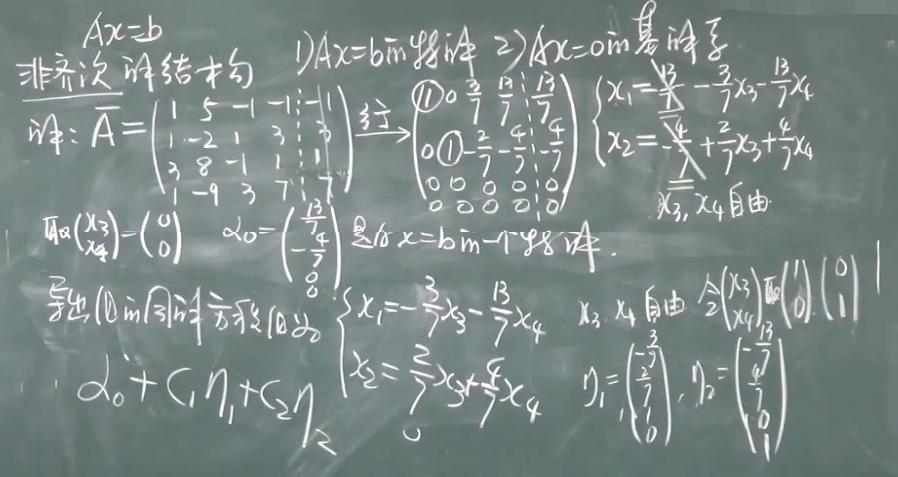 Ax=b
非齐次 解结构 1) Ax=b的特解 2) Ax=0的基础解系
解: A̅ = ( 1 5 -1 -1 ¦ -1 ; 1 -2 1 3 ¦ 3 ; 3 8 -1 1 ¦ 1 ; 1 -9 3 7 ¦ 7 ) 行→ ( 1 0 3/7 13/7 ¦ 13/7 ; 0 1 -2/7 -4/7 ¦ -4/7 ; 0 0 0 0 ¦ 0 ; 0 0 0 0 ¦ 0 ) { x₁ = 13/7 - 3/7 x₃ - 13/7 x₄
x₂ = -4/7 + 2/7 x₃ + 4/7 x₄
x₃, x₄ 自由.
取 (x₃ ; x₄) = (0 ; 0) α₀ = ( 13/7 ; -4/7 ; 0 ; 0 ) 是Ax=b的一个特解.
导出组的同解方程组为 { x₁ = -3/7 x₃ - 13/7 x₄
x₂ = 2/7 x₃ + 4/7 x₄
x₃, x₄ 自由 令 (x₃ ; x₄) 取 (1 ; 0), (0 ; 1)
α₀ + C₁η₁ + C₂η₂
η₁ = ( -3/7 ; 2/7 ; 1 ; 0 ), η₂ = ( -13/7 ; 4/7 ; 0 ; 1 )